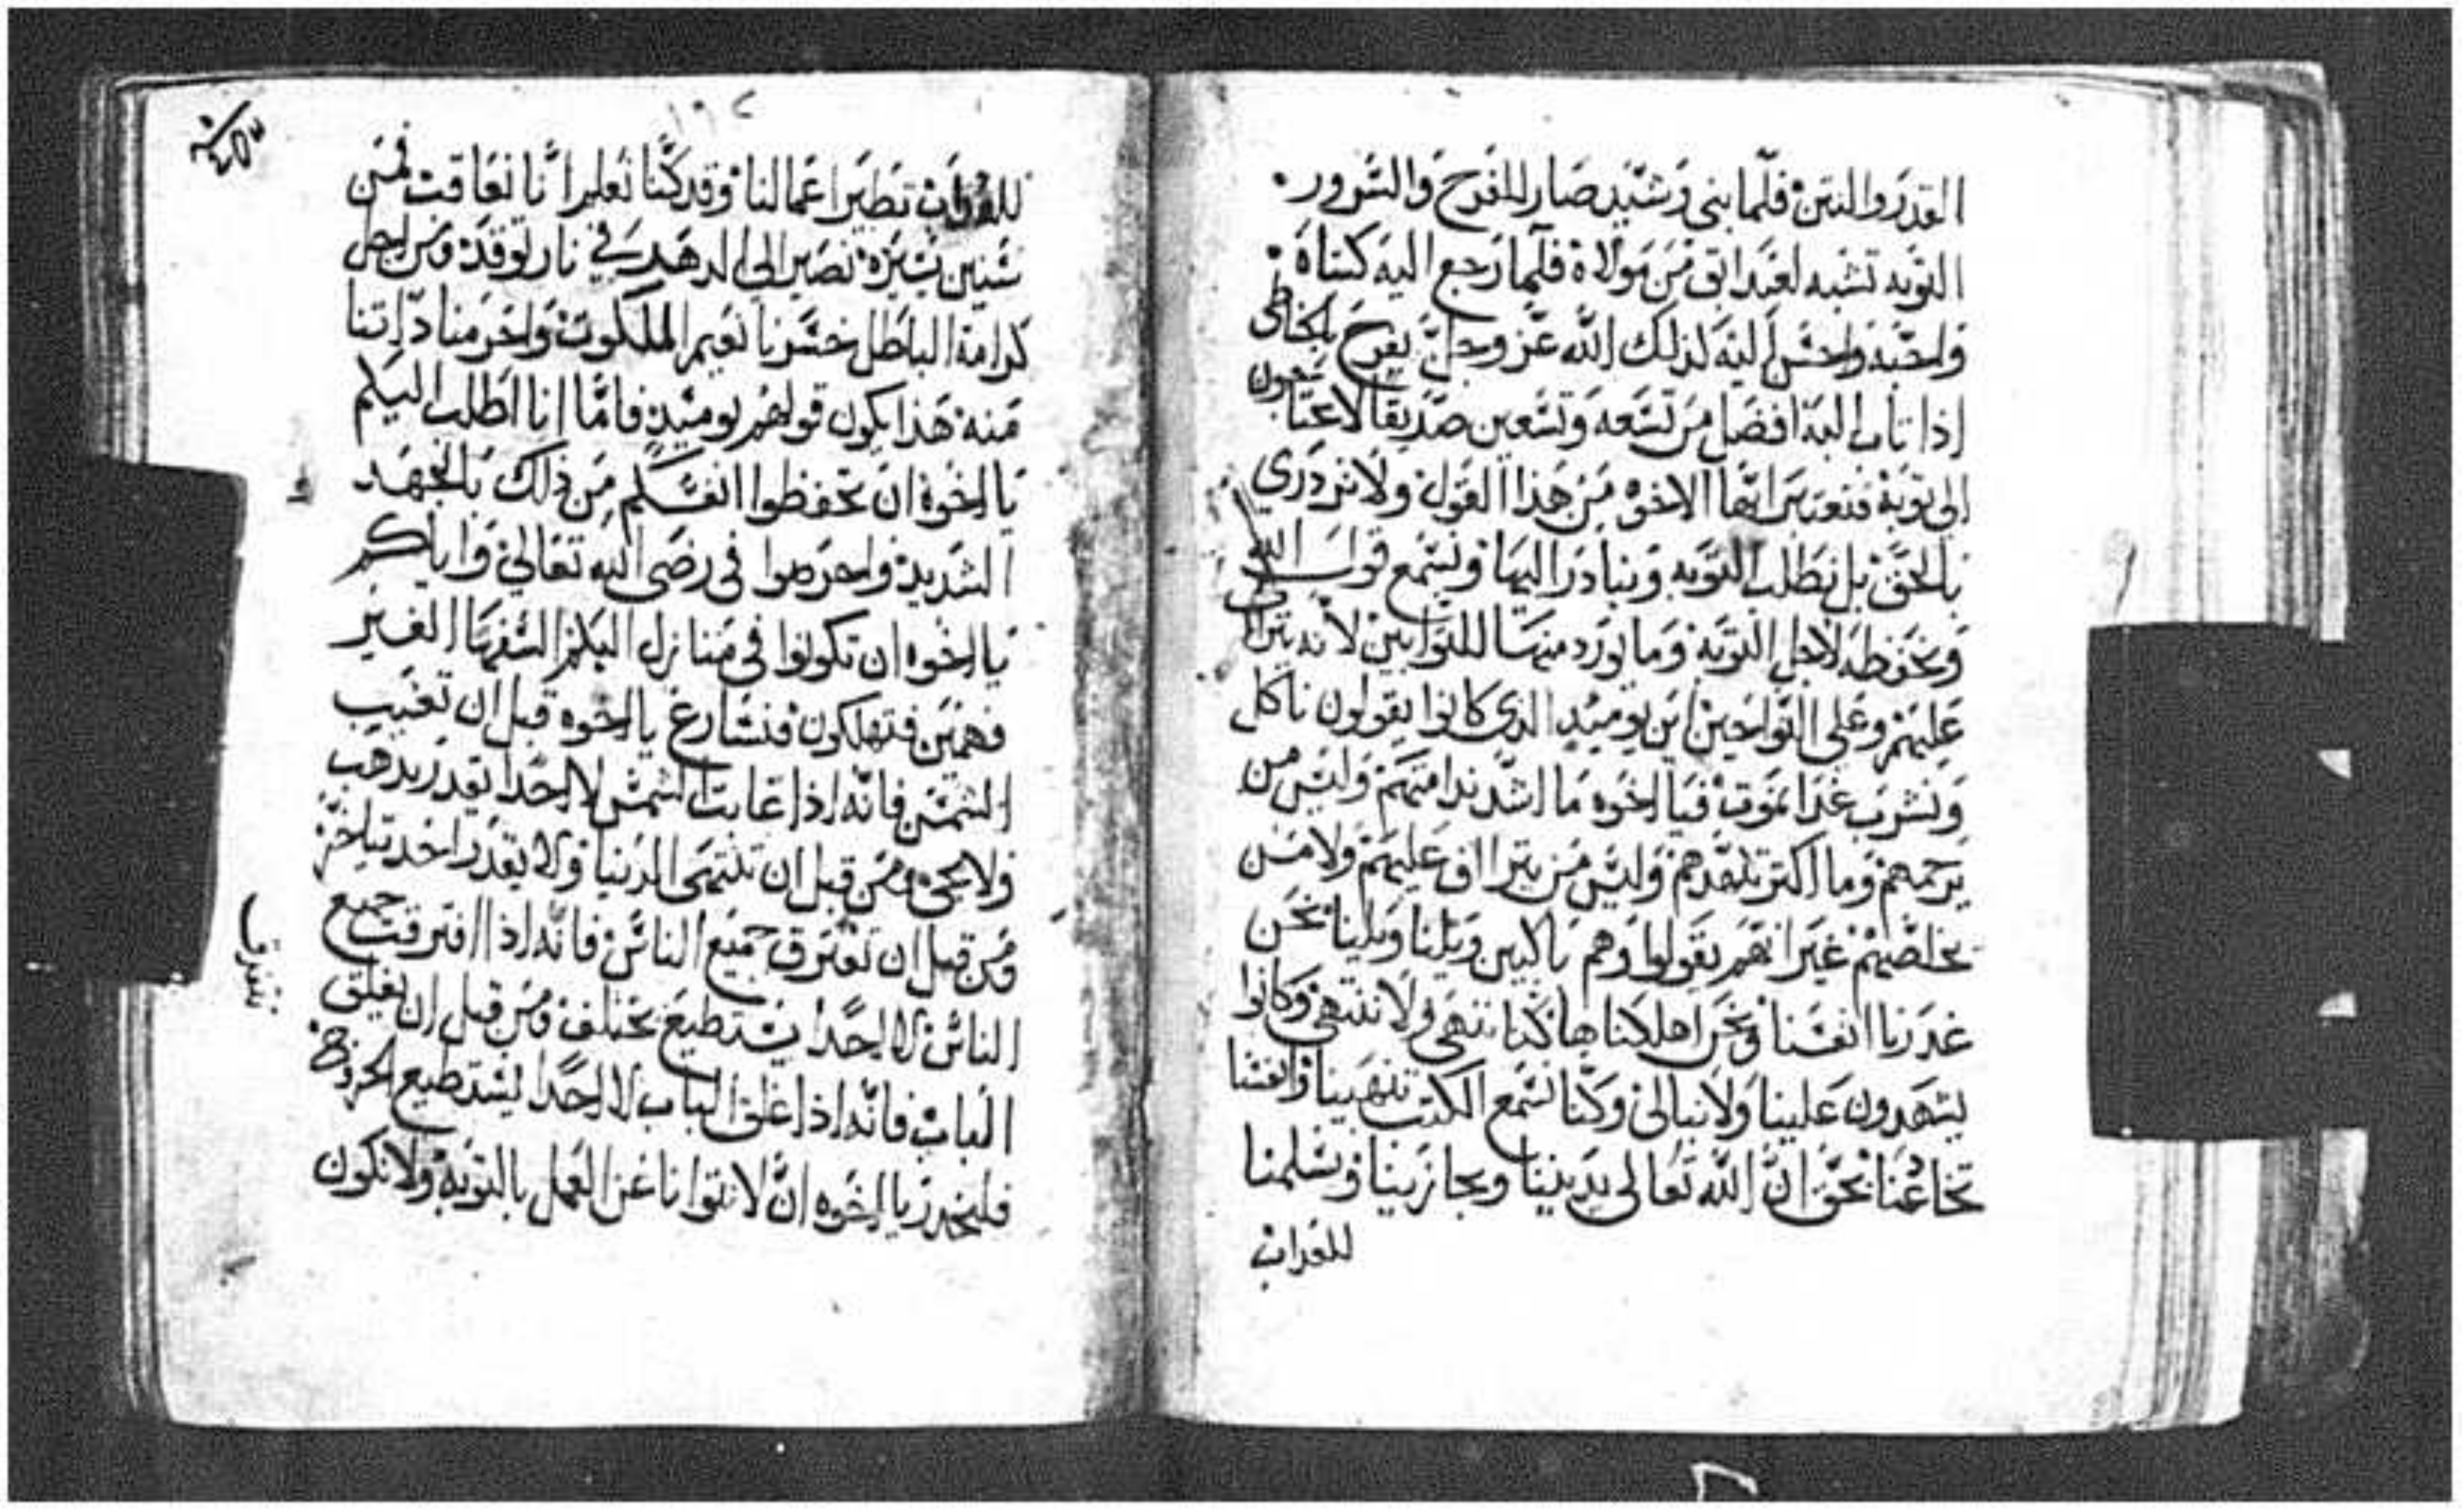 القدر والنتن فلما بنى وشيد صار للفرح والسرور
التوبه تشبه لعبد ابق من مولاة فلما رجع اليه كساه
واحبه واحسن اليه لذلك الله عز وجل يفرح بالخاطى
اذا تاب اليه افضل من تسعه وتسعين صديقا لا يحتاجون
الى توبة فنعتبر ايها الاخوه من هذا القول ولا نزدرى
بالحق بل نطلب التوبه ونبادر اليها ونسمع قول الله
ونحفظه لاجل التوبة وما يورد منها للتوابين لانه يتراف
عليهم وعلى التواحين اين يوميد الذى كانوا يقولون ناكل
ونشرب غدا نموت فيا اخوه ما اشد ندامتهم وليس من
يرحمهم وما اكتر تلهدهم وليس من يتراف عليهم ولا من
يخلصهم غير انهم يقولوا وهم باكين ويلنا ويلنا نحن
غدرنا انفسنا ونحن اهلكنا ها كنا ننهى ولا ننتهى وكانوا
يشهدون علينا ولا نبالى وكنا نسمع الكتب تنهينا وانفسنا
تخادعنا نحق ان الله تعالى يديننا ويجازينا ونسلمنا
للعداب
١٩٢
للعداب نظير اعمالنا وقد كنا نعلم اننا نعاقب فمن
سنين يسيره نصير الى الدهر فى نار توقد ومن اجل
كرامة الباطل خسرنا نعيم الملكوت واحرمنا دواتنا
منه هذا يكون قولهم يوميد فاما انا اطلب اليكم
يا اخوة ان تحفظوا انفسكم من ذلك بالجهد
الشديد واحرصوا فى رضى الله تعالى واياكم
يا اخوه ان تكونوا فى منازل البكم السفها الغير
فهمين فتهلكون فنسارع يا اخوه قبل ان تغيب
الشمس فانه اذا غابت الشمس لا احدا يقدر يدهب
ولا يجى ومن قبل ان تنتهى الدنيا ولا يقدر احد يتاخر
ومن قبل ان تفترق جميع الناس فانه اذا افترقت جميع
الناس لا احدا يستطيع يختلف ومن قبل ان يغلق
الباب فانه اذا غلق الباب لا احدا يستطيع الخروج
فليحدر يا اخوه ان لا نتوانا عن العمل بالتوبة ولا نكون